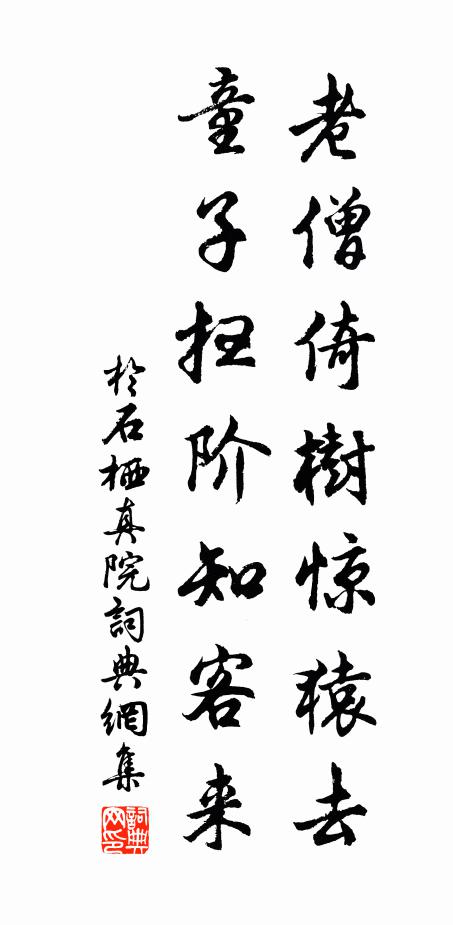 老僧倚樹惊猿去
童子扫阶知客来
於石栖真院詞典網集
詞典网印